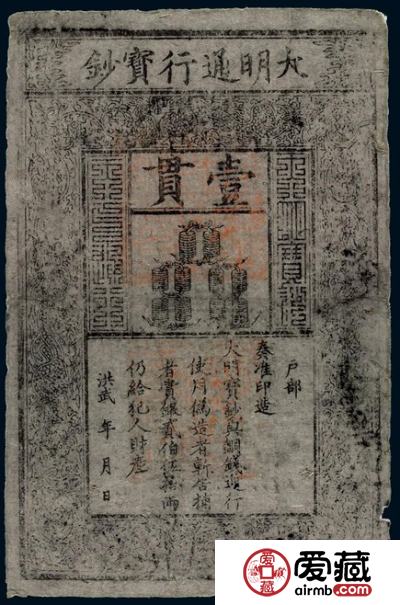 大明通行寶鈔
壹貫
户部
奏准印造
大明寶鈔與銅錢通行
使用偽造者斬告捕
者賞銀貳伯伍拾兩
仍給犯人財產
洪武 年 月 日
爱藏
airmb.com